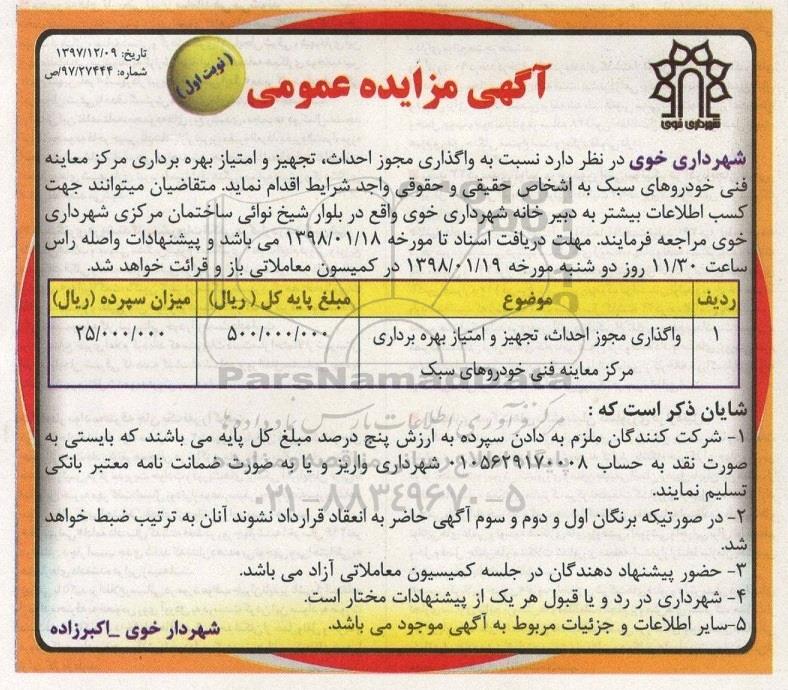 تاریخ: ۱۳۹۷/۱۲/۰۹
شماره: ۹۷/۲۷۴۴۴/ص
(نوبت اول)
آگهی مزایده عمومی
شهرداری خوی
شهرداری خوی در نظر دارد نسبت به واگذاری مجوز احداث، تجهیز و امتیاز بهره برداری مرکز معاینه
فنی خودروهای سبک به اشخاص حقیقی و حقوقی واجد شرایط اقدام نماید. متقاضیان میتوانند جهت
کسب اطلاعات بیشتر به دبیر خانه شهرداری خوی واقع در بلوار شیخ نوائی ساختمان مرکزی شهرداری
خوی مراجعه فرمایند. مهلت دریافت اسناد تا مورخه ۱۳۹۸/۰۱/۱۸ می باشد و پیشنهادات واصله راس
ساعت ۱۱/۳۰ روز دو شنبه مورخه ۱۳۹۸/۰۱/۱۹ در کمیسون معاملاتی باز و قرائت خواهد شد.
ردیف موضوع مبلغ پایه کل (ریال) میزان سپرده (ریال)
۱ واگذاری مجوز احداث، تجهیز و امتیاز بهره برداری ۵۰۰/۰۰۰/۰۰۰ ۲۵/۰۰۰/۰۰۰
مرکز معاینه فنی خودروهای سبک
ParsNamadData
شایان ذکر است که :
مرکز فرآوری اطلاعات پارس نماد داده ها
۱- شرکت کنندگان ملزم به دادن سپرده به ارزش پنج درصد مبلغ کل پایه می باشند که بایستی به
صورت نقد به حساب ۰۱۰۵۶۲۹۱۷۰۰۰۸ شهرداری واریز و یا به صورت ضمانت نامه معتبر بانکی
تسلیم نمایند.
۰۲۱-۸۸۳۴۹۶۷۰-۵
۲- در صورتیکه برنگان اول و دوم و سوم آگهی حاضر به انعقاد قرارداد نشوند آنان به ترتیب ضبط خواهد
شد.
۳- حضور پیشنهاد دهندگان در جلسه کمیسیون معاملاتی آزاد می باشد.
۴- شهرداری در رد و یا قبول هر یک از پیشنهادات مختار است.
۵-سایر اطلاعات و جزئیات مربوط به آگهی موجود می باشد.
شهردار خوی _اکبرزاده